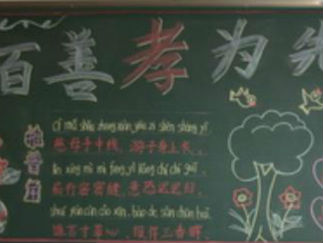 百善孝为先
cí mǔ shǒu zhōng xiàn yóu zǐ shēn shàng yī
慈母手中线，游子身上衣，
lín xíng mì mì féng yì kǒng chí chí guī
临行密密缝，意恐迟迟归。
shuí yán cùn cǎo xīn, bào dé sān chūn huī
谁言寸草心，报得三春晖